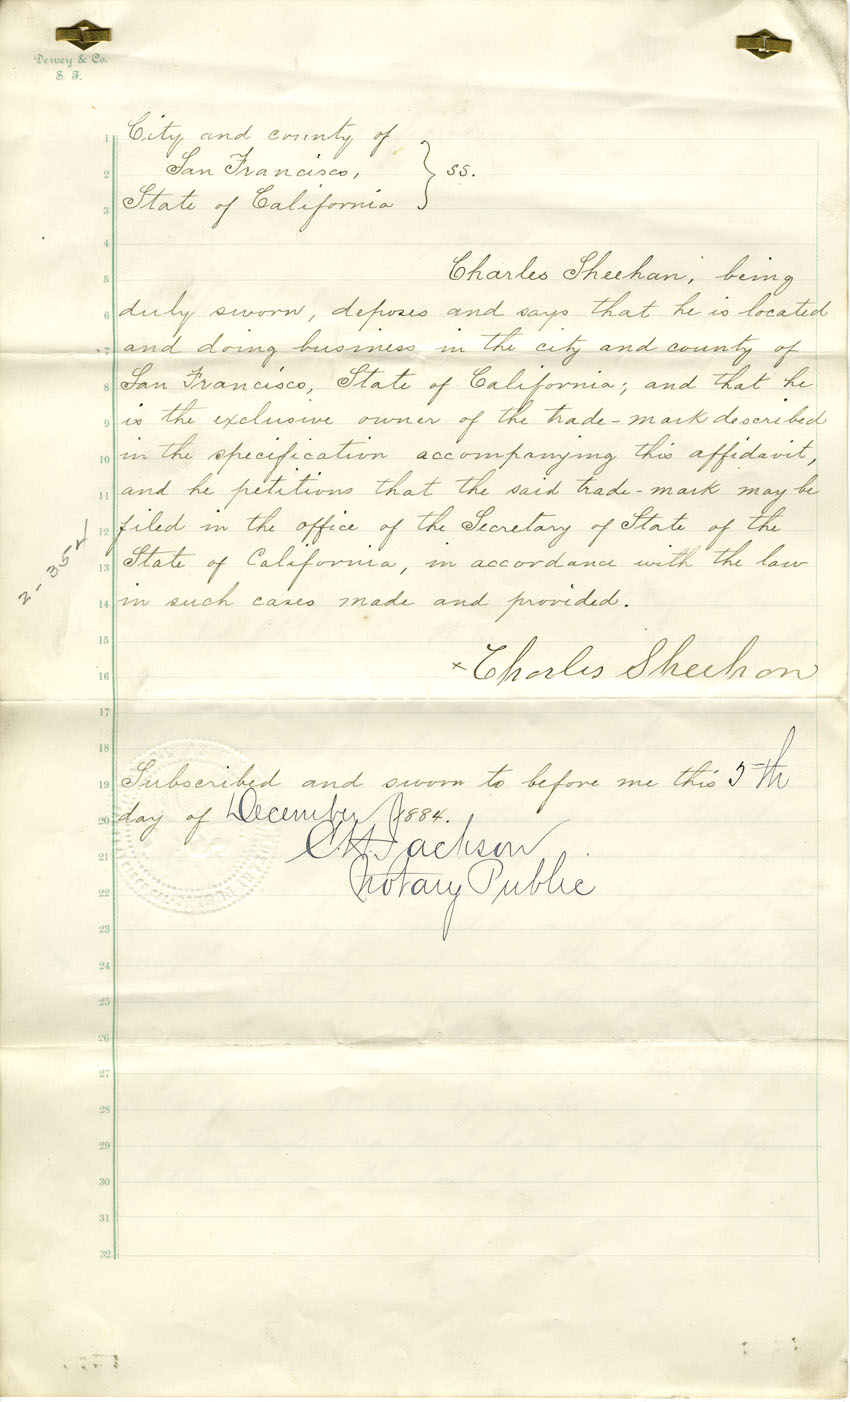 Dewey & Co.
S. F.
1 City and county of
2 San Francisco, } ss.
3 State of California
4
5 Charles Sheehan, being
6 duly sworn, deposes and says that he is located
7 and doing business in the city and county of
8 San Francisco, State of California; and that he
9 is the exclusive owner of the trade-mark described
10 in the specification accompanying this affidavit,
11 and he petitions that the said trade-mark may be
12 filed in the office of the Secretary of State of the
13 State of California, in accordance with the law
14 in such cases made and provided.
2-354
15
16 x Charles Sheehan
17
18
19 Subscribed and sworn to before me this 5th
20 day of December 1884.
21 C. H. Jackson
22 Notary Public
23
24
25
26
27
28
29
30
31
32